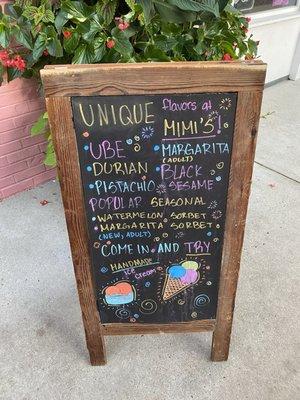 UNIQUE flavors at
MIMI'S!
UBE
MARGARITA
(ADULT)
DURIAN
BLACK
PISTACHIO
SESAME
POPULAR SEASONAL
WATERMELON SORBET
MARGARITA SORBET
(NEW, ADULT)
COME IN AND TRY
HANDMADE
ice cream